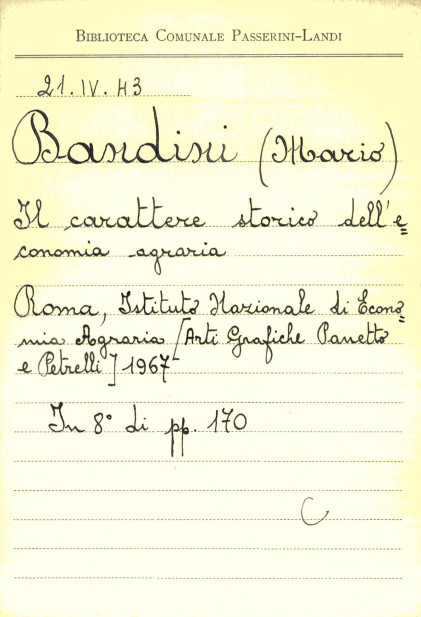 BIBLIOTECA COMUNALE PASSERINI-LANDI
21.IV.43
Bandini (Mario)
Il carattere storico dell'e=
conomia agraria
Roma, Istituto Nazionale di Econo=
mia Agraria [Arti Grafiche Panetto
e Petrelli] 1967
In 8° di pp. 170
C